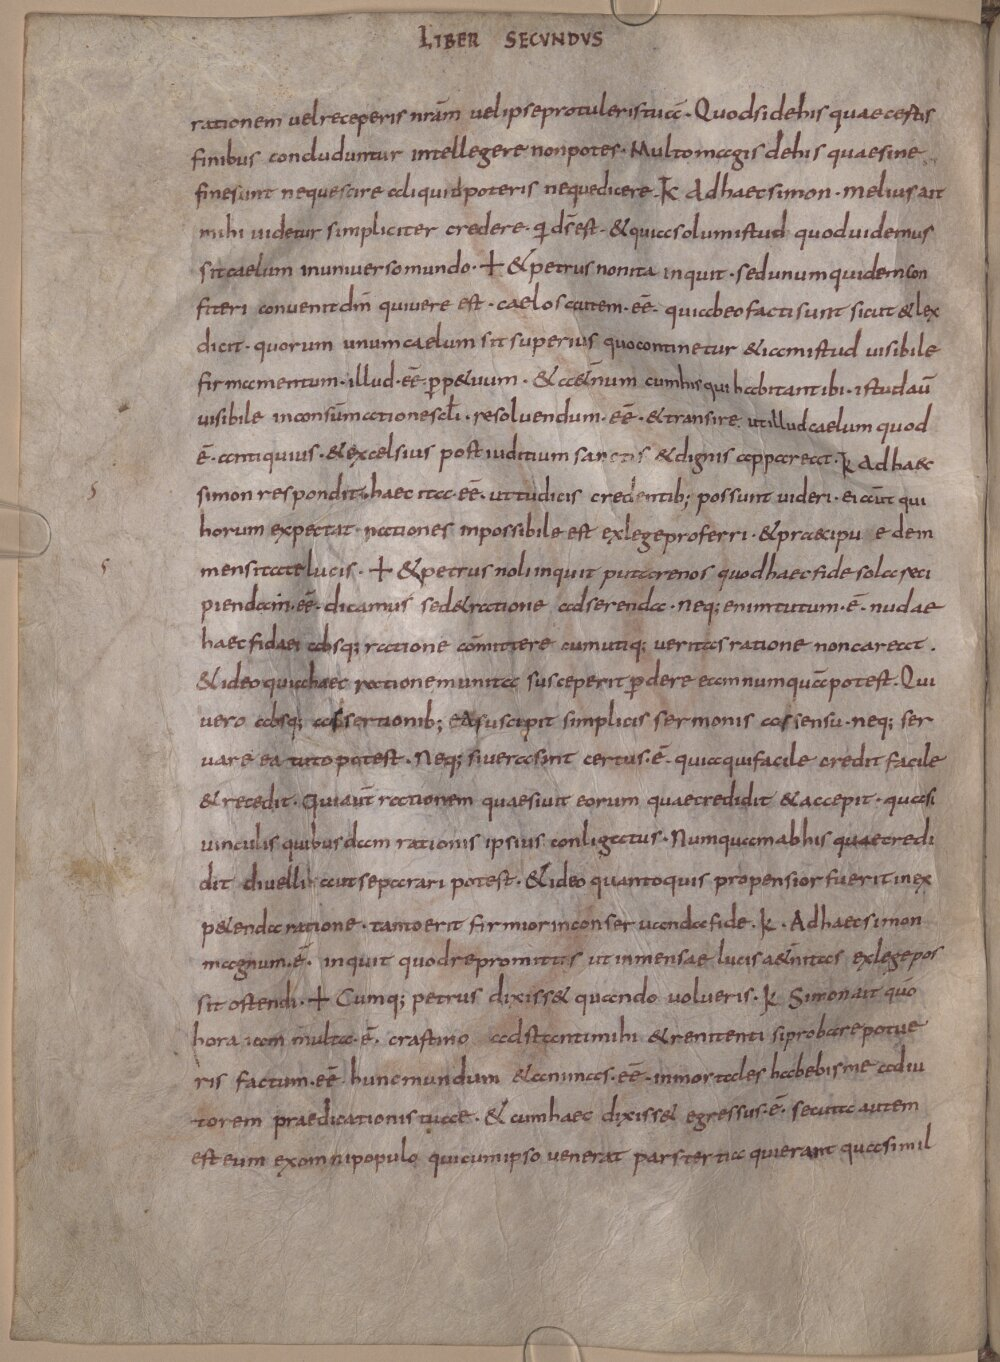 LIBER SECVNDVS
rationem uel receperis nr̄am uel ipse protuleris tua. Quod si de his quae certis
finibus concluduntur intellegere non potes. Multo magis de his quae sine
fine sunt neque scire aliquid poteris neque dicere. k Ad haec simon. melius ait
mihi uidetur simpliciter credere. qd d̄s est. & quia solum istud quod uidemus
sit caelum in uniuerso mundo. + & petrus non ita inquit. sed unum quidem con
fiteri conuenit dm̄ qui uere est. caelos autem. eē. qui ab eo facti sunt sicut & lex
dicit. quorum unum caelum sit superius quo continetur & iam istud uisibile
firmamentum. illud. eē. p̄p&uum. & a&num cum his qui habitant ibi. istud aū
uisibile in consūmatione scl̄i. resoluendum. eē. & transire. ut illud caelum quod
ē. antiquius. & excelsius post iuditium sanctis & dignis appareat. k Ad haec
simon respondit. haec ita. eē. ut tu dicis credentib; possunt uideri. ei aūt qui
horum expectat rationes inpossibile est ex lege proferri. & praecipu e de in
mensitate lucis. + & petrus noli inquit putare nos quod haec fide sola reci
pienda. eē. dicamus sed & ratione adserenda. neq; enim tutum. ē. nudae
haec fidaei absq; ratione cōmittere cum utiq; ueritas ratione non careat.
& ideo qui haec ratione munita susceperit p̱dere ea numquā potest. Qui
uero absq; assertionib; ea suscipit simplicis sermonis assensu. neq; ser
uare ea tuto potest. Neq; si uera sint certus. ē. quia qui facile credit facile
& recedit. Qui aūt rationem quaesiuit eorum quae credidit & accepit. quasi
uinculis quibusdam rationis ipsius conligatus. Numquam ab his quae credi
dit diuelli aut separari potest. & ideo quanto quis propensior fuerit in ex
p&enda ratione. tanto erit firmior in conseruanda fide. k. Ad haec simon
magnum. ē. inquit quod repromittis ut inmensae lucis a&nitas ex lege pos
sit ostendi. + Cumq; petrus dixiss& quando uolueris. k Simon ait quo
hora iam multa. ē. crastino adstanti mihi & renitenti si probare potue
ris factum. eē. hunc mundum & animas. eē. inmortales habebis me adiu
torem praedicationis tuae. & cum haec dixiss& egressus. ē. secuta autem
est eum ex omni populo qui cum ipso uenerat pars tertia qui erant quasi mil